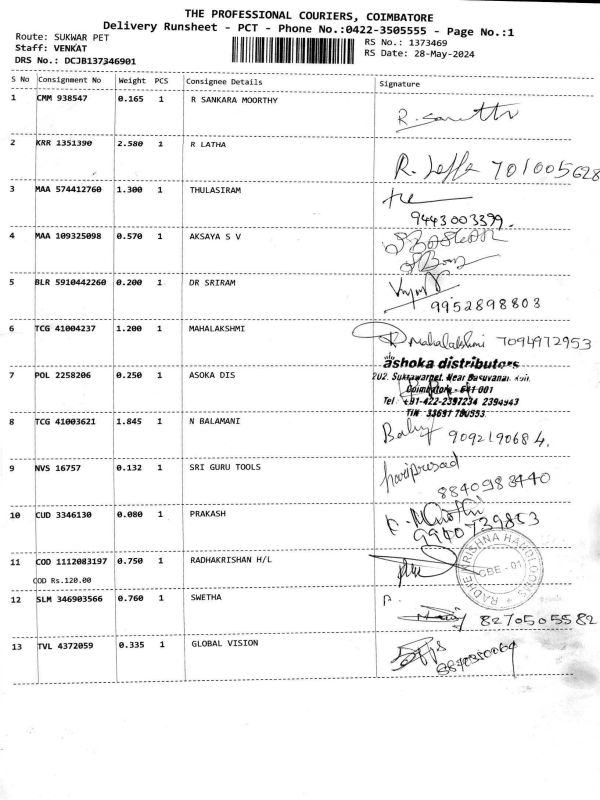 THE PROFESSIONAL COURIERS, COIMBATORE
Delivery Runsheet - PCT - Phone No.:0422-3505555 - Page No.:1
Route: SUKWAR PET
Staff: VENKAT
DRS No.: DCJB137346901
RS No.: 1373469
RS Date: 28-May-2024
S No Consignment No Weight PCS Consignee Details Signature
1 CMM 938547 0.165 1 R SANKARA MOORTHY
2 KRR 1351390 2.580 1 R LATHA R. 701005628
3 MAA 574412760 1.300 1 THULASIRAM
9443003399.
4 MAA 109325098 0.570 1 AKSAYA S V S BASKAR
5 BLR 5910442260 0.200 1 DR SRIRAM
9952898803
6 TCG 41004237 1.200 1 MAHALAKSHMI Mahalakshmi 7094972953
ashoka distributors
7 POL 2258206 0.250 1 ASOKA DIS 202, Sukrawarpet, Near Basuvanar
Coimbatore - 641 001
Tel : +91-422-2397234 2394943
TIN 33691 780553
8 TCG 41003621 1.845 1 N BALAMANI
9092190684.
9 NVS 16757 0.132 1 SRI GURU TOOLS hariprasad
8840983440
10 CUD 3346130 0.080 1 PRAKASH
9940739853
11 COD 1112083197 0.750 1 RADHAKRISHAN H/L
COD Rs.120.00
CBE - 01
12 SLM 346903566 0.760 1 SWETHA
8270505582
13 TVL 4372059 0.335 1 GLOBAL VISION